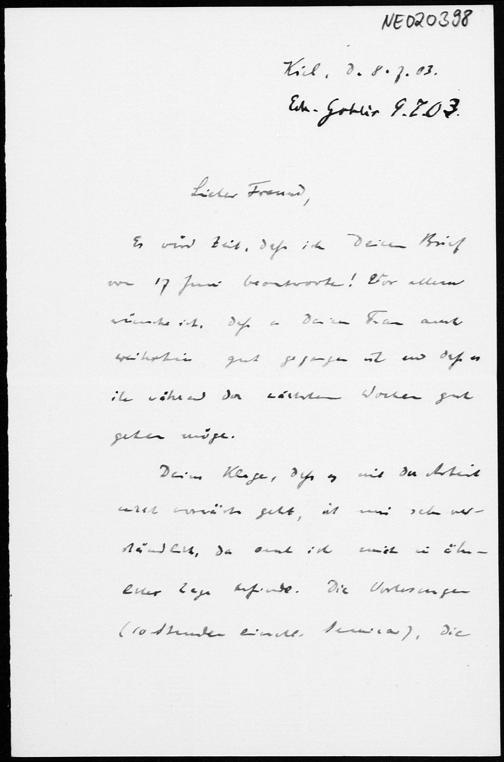 NE020398
Kiel, d. 8.7.03.
9.7.03.
Lieber Freund,
Es wird Zeit, daß ich Deinen Brief
vom 17 Juni beantworte! Vor allem
wünsche ich, daß es Deiner Frau auch
weiterhin gut gegangen ist und daß es
ihr während der nächsten Wochen gut
gehen möge.
Deine Klage, daß es mit der Arbeit
nicht vorwärts geht, ist mir sehr ver-
ständlich, da auch ich mich in ähn-
licher Lage befinde. Die Vorlesungen
(10 Stunden einschl. Seminar), die